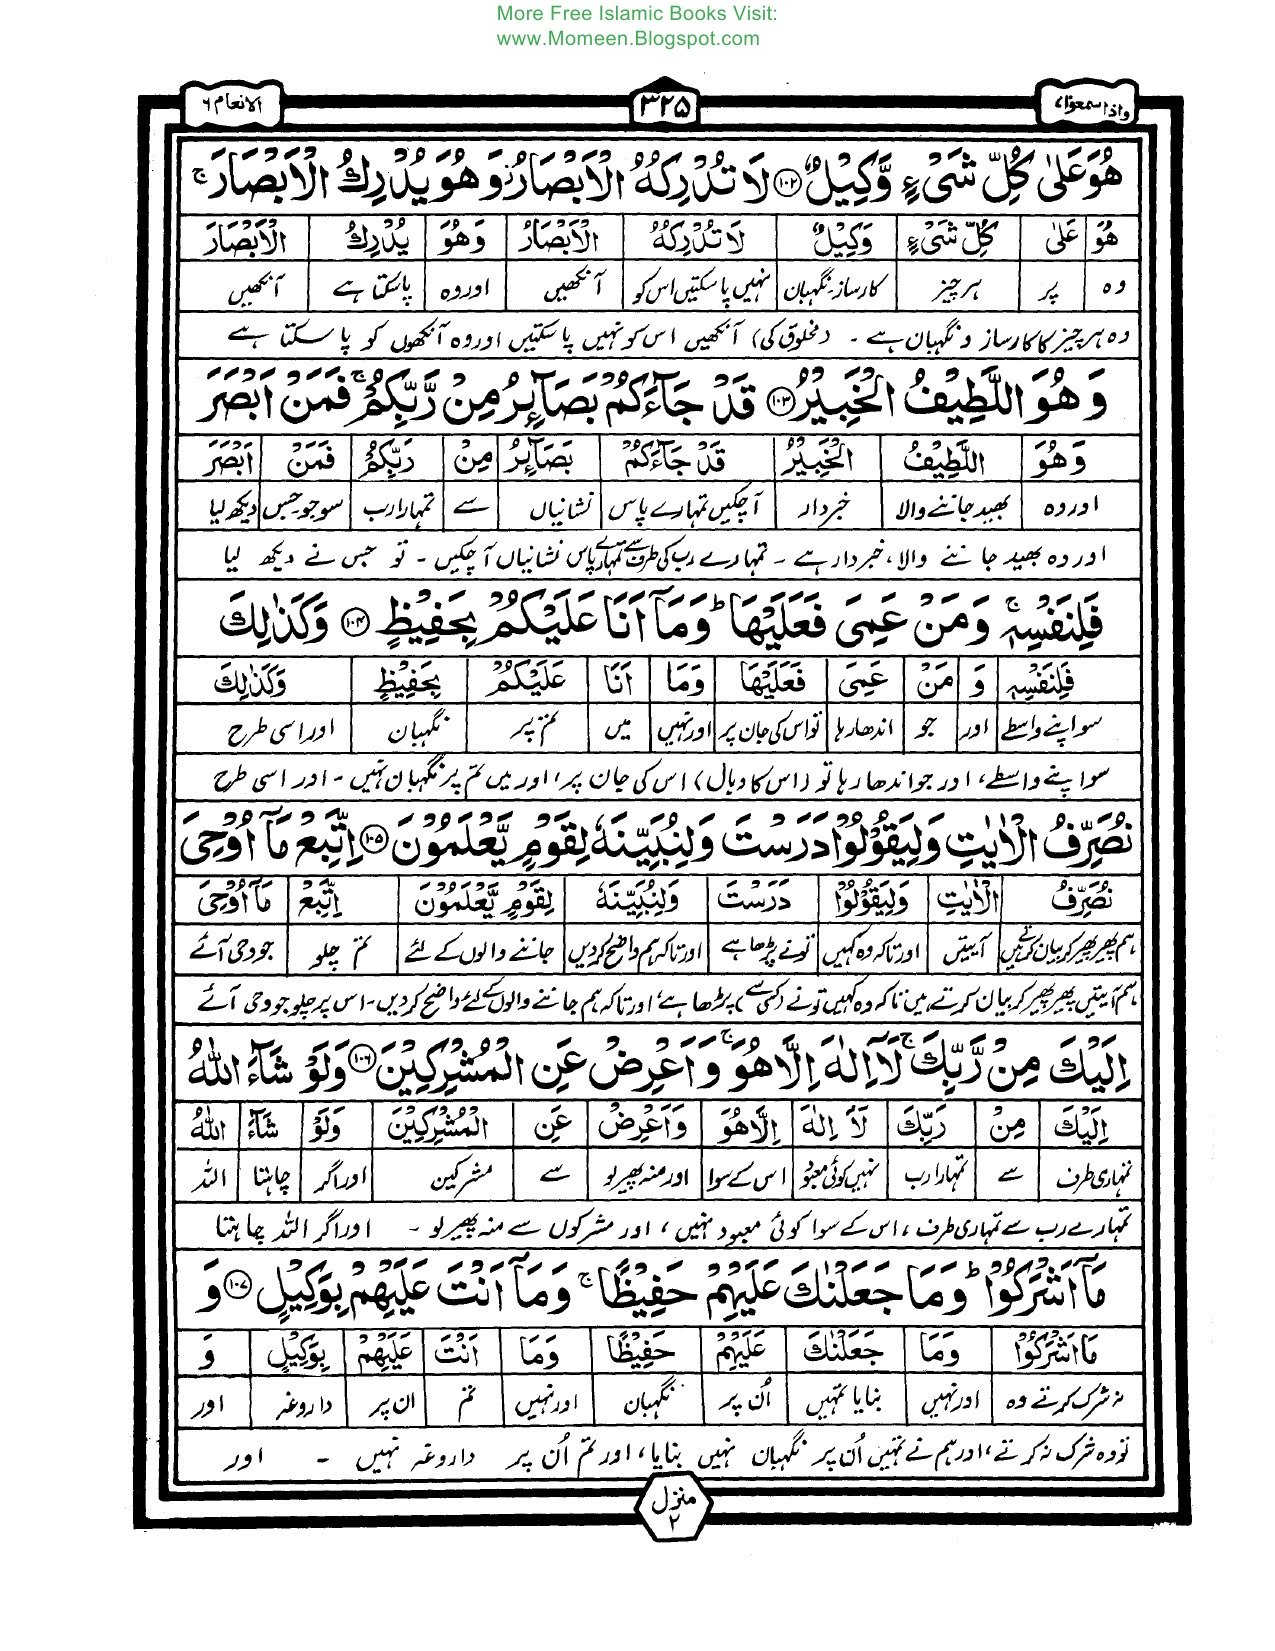 More Free Islamic Books Visit:
www.Momeen.Blogspot.com
واذا سمعوا ۷
۳۲۵
الانعام ۶
هُوَ عَلٰى كُلِّ شَىْءٍ وَّكِيْلٌ ۝۱۰۲ لَا تُدْرِكُهُ الْاَبْصَارُ وَهُوَ يُدْرِكُ الْاَبْصَارَ ج
هُوَ عَلٰى كُلِّ شَىْءٍ وَكِيْلٌ لَا تُدْرِكُهُ الْاَبْصَارُ وَهُوَ يُدْرِكُ الْاَبْصَارَ
وہ پر ہر چیز کارساز۔نگہبان نہیں پا سکتیں اس کو آنکھیں اور وہ پا سکتا ہے آنکھیں
وہ ہر چیز کا کارساز و نگہبان ہے ۔ (مخلوق کی) آنکھیں اس کو نہیں پا سکتیں اور وہ آنکھوں کو پا سکتا ہے
وَهُوَ اللَّطِيْفُ الْخَبِيْرُ ۝۱۰۳ قَدْ جَآءَكُمْ بَصَآئِرُ مِنْ رَّبِّكُمْ ج فَمَنْ اَبْصَرَ
وَهُوَ اللَّطِيْفُ الْخَبِيْرُ قَدْ جَآءَكُمْ بَصَآئِرُ مِنْ رَبِّكُمْ فَمَنْ اَبْصَرَ
اور وہ بھید جاننے والا خبردار آ چکیں تمہارے پاس نشانیاں سے تمہارا رب سو جو۔جس دیکھ لیا
اور وہ بھید جاننے والا، خبردار ہے ۔ تمہارے رب کی طرف سے تمہارے پاس نشانیاں آ چکیں ۔ تو جس نے دیکھ لیا
فَلِنَفْسِهٖ ج وَمَنْ عَمِىَ فَعَلَيْهَا ط وَمَآ اَنَا عَلَيْكُمْ بِحَفِيْظٍ ۝۱۰۴ وَكَذٰلِكَ
فَلِنَفْسِهٖ وَ مَنْ عَمِىَ فَعَلَيْهَا وَمَا اَنَا عَلَيْكُمْ بِحَفِيْظٍ وَكَذٰلِكَ
سو اپنے واسطے اور جو اندھا رہا تو اس کی جان پر اور نہیں میں تم پر نگہبان اور اسی طرح
سو اپنے واسطے، اور جو اندھا رہا تو (اس کا وبال) اس کی جان پر، اور میں تم پر نگہبان نہیں ۔ اور اسی طرح
نُصَرِّفُ الْاٰيٰتِ وَلِيَقُوْلُوْا دَرَسْتَ وَلِنُبَيِّنَهٗ لِقَوْمٍ يَّعْلَمُوْنَ ۝۱۰۵ اِتَّبِعْ مَآ اُوْحِىَ
نُصَرِّفُ الْاٰيٰتِ وَلِيَقُوْلُوْا دَرَسْتَ وَلِنُبَيِّنَهٗ لِقَوْمٍ يَّعْلَمُوْنَ اِتَّبِعْ مَآ اُوْحِىَ
ہم پھیر پھیر کر بیان کرتے ہیں آیتیں اور تاکہ وہ کہیں تو نے پڑھا ہے اور تاکہ ہم واضح کر دیں جاننے والوں کے لئے تم چلو جو وحی آئے
ہم آیتیں پھیر پھیر کر بیان کرتے ہیں تاکہ وہ کہیں تو نے (کسی سے) پڑھا ہے، اور تاکہ ہم جاننے والوں کے لئے واضح کر دیں۔ اس پر چلو جو وحی آئے
اِلَيْكَ مِنْ رَّبِّكَ ج لَآ اِلٰهَ اِلَّا هُوَ ج وَاَعْرِضْ عَنِ الْمُشْرِكِيْنَ ۝۱۰۶ وَلَوْ شَآءَ اللّٰهُ
اِلَيْكَ مِنْ رَبِّكَ لَآ اِلٰهَ اِلَّا هُوَ وَاَعْرِضْ عَنِ الْمُشْرِكِيْنَ وَلَوْ شَآءَ اللّٰهُ
تمہاری طرف سے تمہارا رب نہیں کوئی معبود اس کے سوا اور منہ پھیر لو سے مشرکین اور اگر چاہتا اللہ
تمہارے رب سے تمہاری طرف، اس کے سوا کوئی معبود نہیں، اور مشرکوں سے منہ پھیر لو ۔ اور اگر اللہ چاہتا
مَآ اَشْرَكُوْا ط وَمَا جَعَلْنٰكَ عَلَيْهِمْ حَفِيْظًا ج وَمَآ اَنْتَ عَلَيْهِمْ بِوَكِيْلٍ ۝۱۰۷ وَ
مَا اَشْرَكُوْا وَمَا جَعَلْنٰكَ عَلَيْهِمْ حَفِيْظًا وَمَا اَنْتَ عَلَيْهِمْ بِوَكِيْلٍ وَ
نہ شرک کرتے وہ اور نہیں بنایا تمہیں اُن پر نگہبان اور نہیں تم ان پر داروغہ اور
تو وہ شرک نہ کرتے، اور ہم نے تمہیں اُن پر نگہبان نہیں بنایا، اور تم اُن پر داروغہ نہیں ۔ اور
منزل
۲